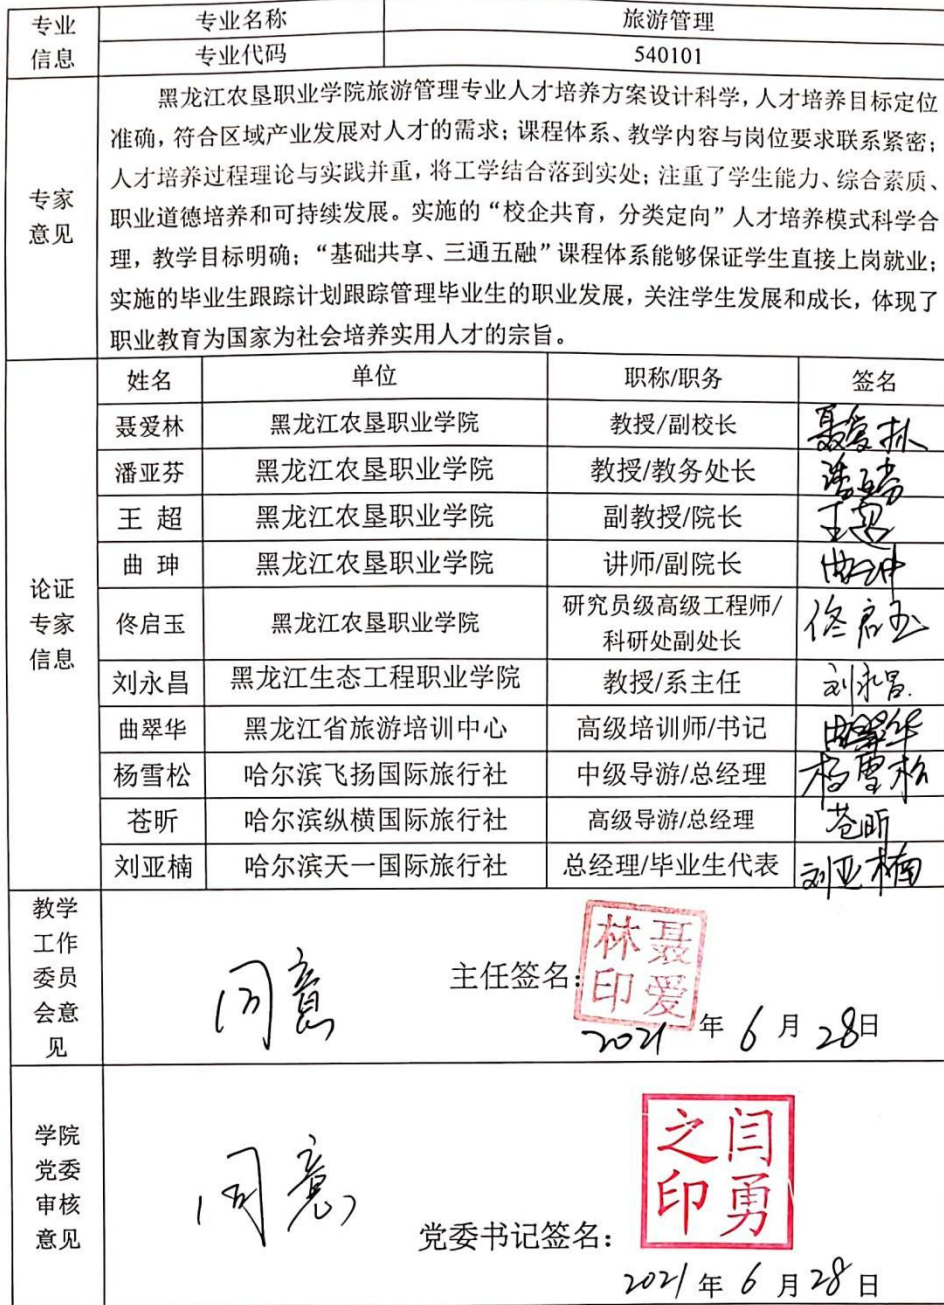 专业信息 专业名称 旅游管理
专业代码 540101
专家意见
黑龙江农垦职业学院旅游管理专业人才培养方案设计科学，人才培养目标定位
准确，符合区域产业发展对人才的需求；课程体系、教学内容与岗位要求联系紧密；
人才培养过程理论与实践并重，将工学结合落到实处；注重了学生能力、综合素质、
职业道德培养和可持续发展。实施的“校企共育，分类定向”人才培养模式科学合
理，教学目标明确；“基础共享、三通五融”课程体系能够保证学生直接上岗就业；
实施的毕业生跟踪计划跟踪管理毕业生的职业发展，关注学生发展和成长，体现了
职业教育为国家为社会培养实用人才的宗旨。
论证专家信息
姓名 单位 职称/职务 签名
聂爱林 黑龙江农垦职业学院 教授/副校长 聂爱林
潘亚芬 黑龙江农垦职业学院 教授/教务处长 潘亚芬
王 超 黑龙江农垦职业学院 副教授/院长 王超
曲 珅 黑龙江农垦职业学院 讲师/副院长 曲珅
佟启玉 黑龙江农垦职业学院 研究员级高级工程师/
科研处副处长 佟启玉
刘永昌 黑龙江生态工程职业学院 教授/系主任 刘永昌
曲翠华 黑龙江省旅游培训中心 高级培训师/书记 曲翠华
杨雪松 哈尔滨飞扬国际旅行社 中级导游/总经理 杨雪松
苍昕 哈尔滨纵横国际旅行社 高级导游/总经理 苍昕
刘亚楠 哈尔滨天一国际旅行社 总经理/毕业生代表 刘亚楠
教学
工作
委员
会意
见
同意
主任签名：
聂爱林印
2021年6月28日
学院
党委
审核
意见
同意
党委书记签名：
闫勇之印
2021年6月28日